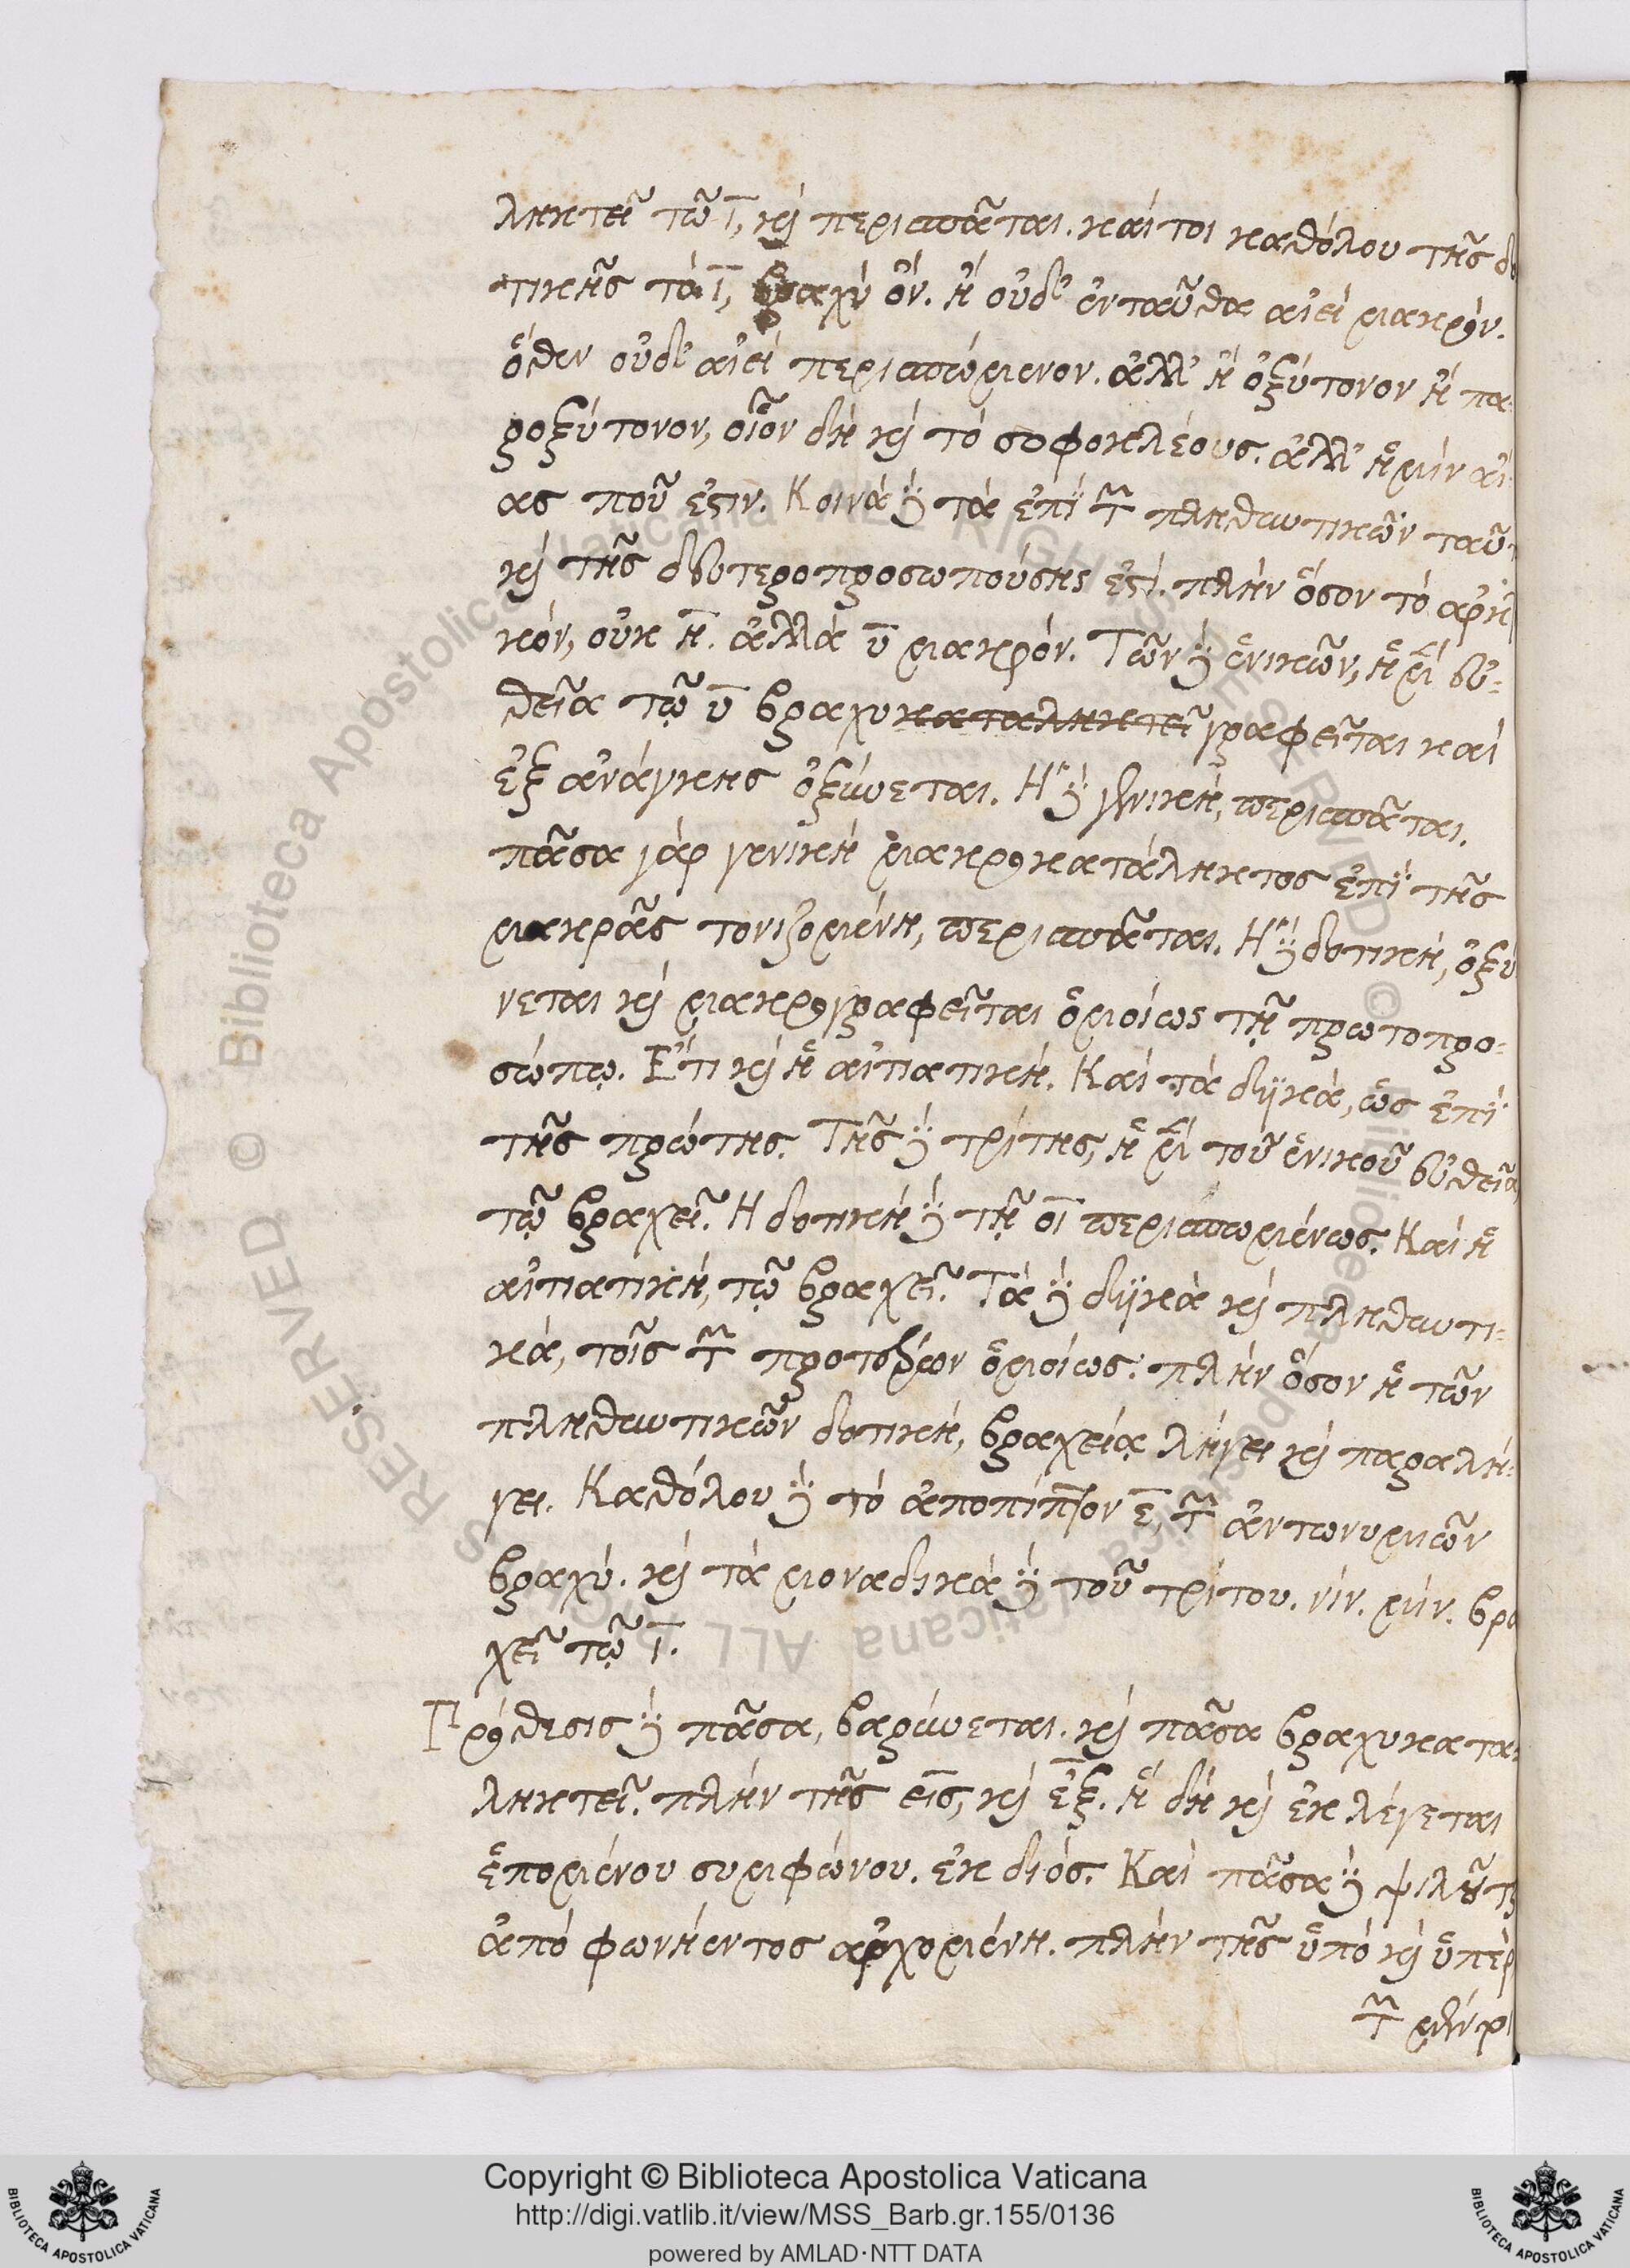 ληκτεῖ τῶ ῑ, καὶ περισπᾶται. καίτοι καθόλου τῆς δο
τικῆς τὸ ῑ, βραχὺ ὄν. ἢ οὐδ' ἐνταῦθα αἰεὶ μακρόν.
ὅθεν οὐδ' αἰεὶ περισπώμενον. ἀλλ' ἢ ὀξύτονον ἢ πα-
ροξύτονον, οἷον δὴ καὶ τὸ σοφοκλέους. ἀλλ' ἡμὶν αἴ-
ας ποῦ ἐστιν. Κοινὰ δὲ τὰ ἐπὶ τῶν πληθυντικῶν ταῦτ
καὶ τῆς δευτεροπροσωπούσης ἐστί. πλὴν ὅσον τὸ ἀρκτι
κὸν, οὐκ η̄. ἀλλὰ ῡ μακρόν. Τῶν δὲ ἑνικῶν, ἡ μὲν εὐ-
θεῖα τῷ ῡ βραχυκαταληκτεῖ γραφεῖται καὶ
ἐξ ἀνάγκης ὀξύνεται. Ἡ δὲ γενικὴ, περισπᾶται.
πᾶσα γὰρ γενικὴ μακροκατάληκτος ἐπὶ τῆς
μακρᾶς τονιζομένη, περισπᾶται. Ἡ δὲ δοτικὴ, ὀξύ
νεται καὶ μακρογραφεῖται ὁμοίως τῇ πρωτοπρο-
σώπῳ. Ἔτι καὶ ἡ αἰτιατική. Καὶ τὰ δυϊκὰ, ὡς ἐπὶ
τῆς πρώτης. Τῆς δὲ τρίτης, ἡ μὲν τοῦ ἑνικοῦ εὐθεῖα,
τῷ βραχεῖ. Η δοτικὴ δὲ τῇ οῑ περισπωμένως. Καὶ ἡ
αἰτιατικὴ, τῷ βραχεῖ. Τὰ δὲ δυϊκὰ καὶ πληθυντι-
κὰ, τοῖς τῶν προτέρων ὁμοίως. πλὴν ὅσον ἡ τῶν
πληθυντικῶν δοτικὴ, βραχείᾳ λήγει καὶ παραλή-
γει. Καθόλου δὲ τὸ ἀποπίπτον ε̄, τῶν ἀντωνυμιῶν
βραχύ. καὶ τὰ μοναδικὰ δὲ τοῦ τρίτου. νίν. μίν. βρα
χεῖ τῷ ῑ.
Πρόθεσις δὲ πᾶσα, βαρύνεται. καὶ πᾶσα βραχυκατα-
ληκτεῖ. πλὴν τῆς εῑς, καὶ ἐ̄ξ. ἣ δὴ καὶ ἐκ λέγεται
ἑπομένου συμφώνου. ἐκ διός. Καὶ πᾶσα δὲ ψιλοῦτ
ἀπὸ φωνήεντος ἀρχομένη. πλὴν τῆς ὑπὸ καὶ ὑπὲρ
τῶν